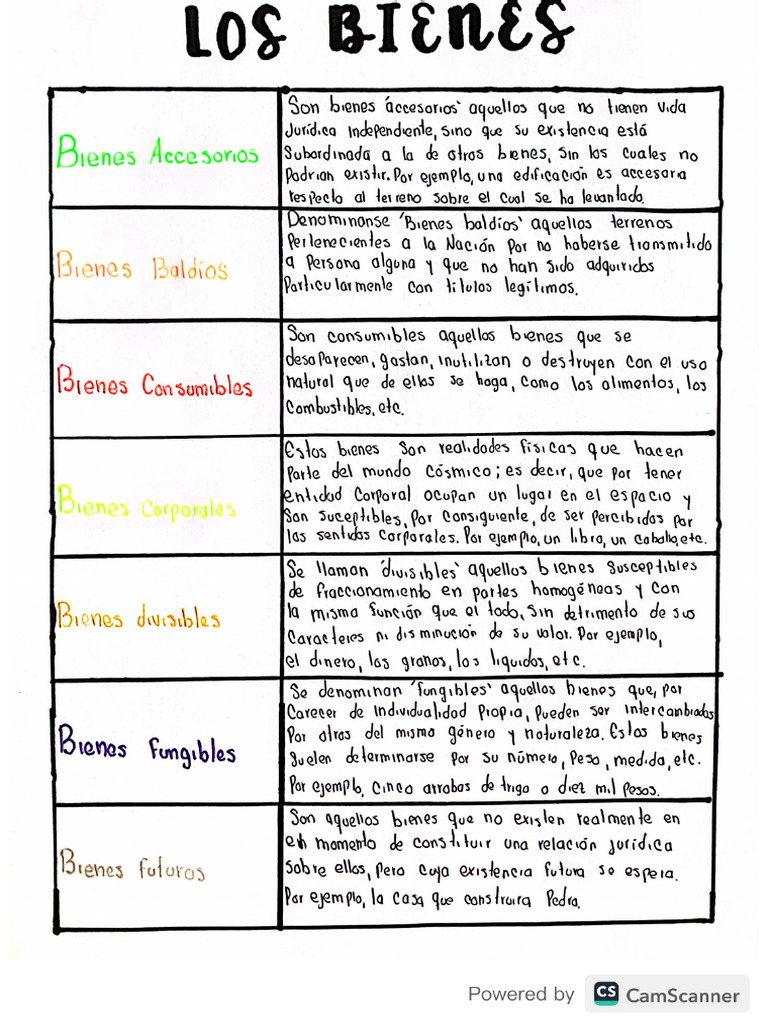 LOS BIENES
Bienes Accesorios
Son bienes 'accesorios' aquellos que no tienen vida
Jurídica Independiente, sino que su existencia está
Subordinada a la de otros bienes, sin los cuales no
Podrian existir. Por ejemplo, una edificación es accesora
respecto al terreno sobre el cual se ha levantado.
Bienes Baldíos
Denominanse 'Bienes baldíos' aquellos terrenos
Pertenecientes a la Nación Por no haberse transmitido
a Persona alguna y que no han sido adquiridos
Particularmente con títulos legítimos.
Bienes Consumibles
Son consumibles aquellos bienes que se
desaparecen, gastan, inutilizan o destruyen con el uso
natural que de ellos se haga, como los alimentos, los
Combustibles, etc.
Bienes Corporales
Estos bienes son realidades físicas que hacen
Parte del mundo Cósmico; es decir, que por tener
entidad Corporal ocupan un lugar en el espacio y
son suceptibles, Por consiguiente, de ser percibidas por
los sentidos corporales. Por ejemplo, un libro, un caballo, etc.
Bienes divisibles
Se llaman 'divisibles' aquellos bienes susceptibles
de fraccionamiento en partes homogéneas y con
la misma función que el todo, sin detrimento de sus
Caracteres ni disminución de su valor. Por ejemplo,
el dinero, los granos, los liquidos, etc.
Bienes fungibles
Se denominan 'fungibles' aquellos bienes que, por
Carecer de Individualidad Propia, Pueden ser intercambiados
Por otros del mismo género y naturaleza. Estos bienes
Suelen determinarse por su número, Peso, medida, etc.
Por ejemplo, Cinco arrobas de trigo o diez mil pesos.
Bienes futuros
Son aquellos bienes que no existen realmente en
el momento de constituir una relación jurídica
sobre ellos, pero cuya existencia futura se espera.
Por ejemplo, la casa que construira Pedro.
Powered by CS CamScanner